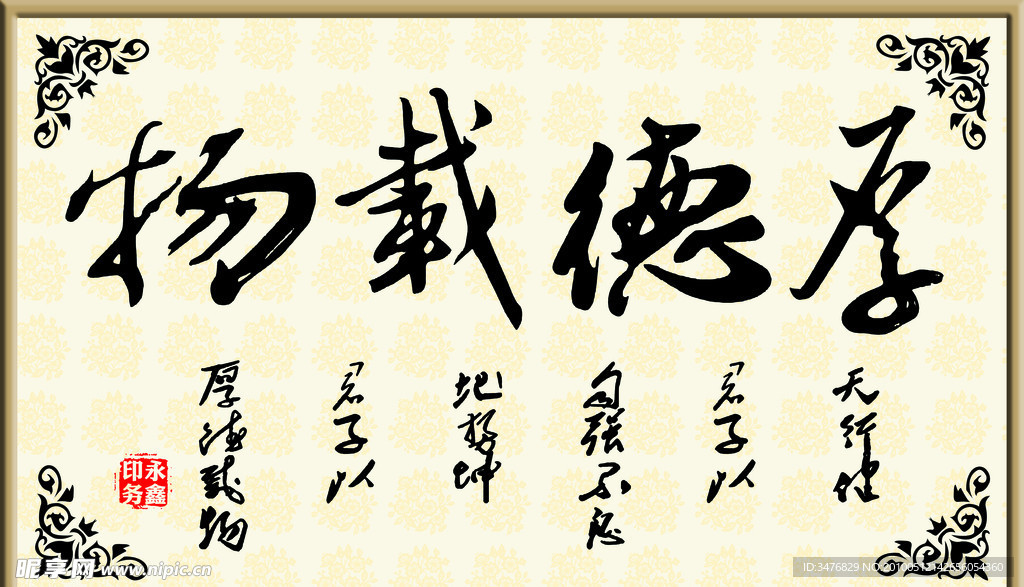 厚德载物
天行健
君子以
自强不息
地势坤
君子以
厚德载物
永鑫
印务
昵享网 www.nipic.cn
ID:3476829 NO:20100512142656054360